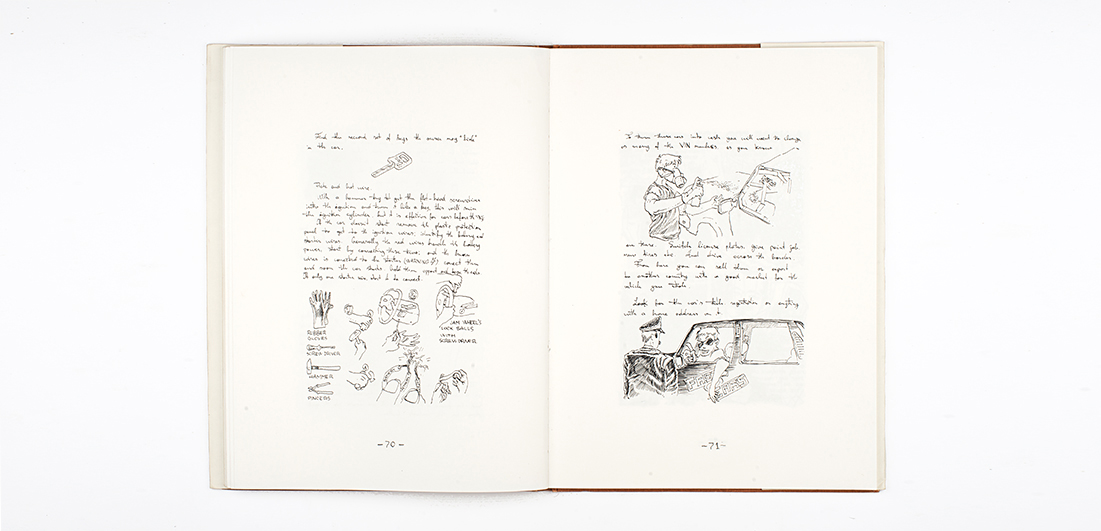 Find the second set of keys the owner may "hide"
in the car.
and hot wire
With a hammer try to get the flat-head screwdriver
into the ignition and turn it like a key, this will ruin
the ignition cylinder, but it is effective for cars before the
If the car doesn't start remove the plastic protection
panel to get to the ignition wires; identify the battery and
starter wires. Generally the red wires handle the battery
power, start by connecting these two; and the brown
wires is connected to the starter (WARNING) connect them
and once the car starts hold them appart and
If only one starter wire
RUBBER
GLOVES
SCREW DRIVER
HAMMER
PINCERS
JAM WHEEL'S
LOCK BALLS
WITH
SCREWDRIVER
-70-
To turn these cars into cash you will want to change
as many of the VIN numbers as you know
are there. Switch license plates, give paint job
new tires etc. And drive across the border.
From here you can sell them or export
to another country with a good market for the
vehicle you stole.
Look for the car's title registration or anything
with a home address on it.
-71-